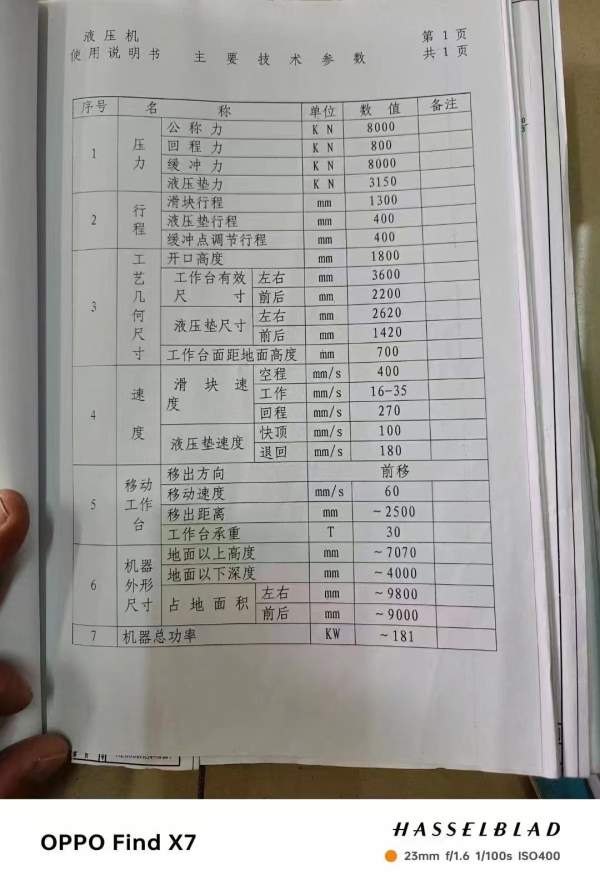 液压机
使用说明书
主要技术参数
第1页
共1页
序号 名称 单位 数值 备注
1 压力 公称力 KN 8000
回程力 KN 800
缓冲力 KN 8000
液压垫力 KN 3150
2 行程 滑块行程 mm 1300
液压垫行程 mm 400
缓冲点调节行程 mm 400
3 工艺几何尺寸 开口高度 mm 1800
工作台有效尺寸 左右 mm 3600
前后 mm 2200
液压垫尺寸 左右 mm 2620
前后 mm 1420
工作台面距地面高度 mm 700
4 速度 滑块速度 空程 mm/s 400
工作 mm/s 16-35
回程 mm/s 270
液压垫速度 快顶 mm/s 100
退回 mm/s 180
5 移动工作台 移出方向 前移
移动速度 mm/s 60
移出距离 mm ~2500
工作台承重 T 30
6 机器外形尺寸 地面以上高度 mm ~7070
地面以下深度 mm ~4000
占地面积 左右 mm ~9800
前后 mm ~9000
7 机器总功率 KW ~181
OPPO Find X7
HASSELBLAD
23mm f/1.6 1/100s ISO400